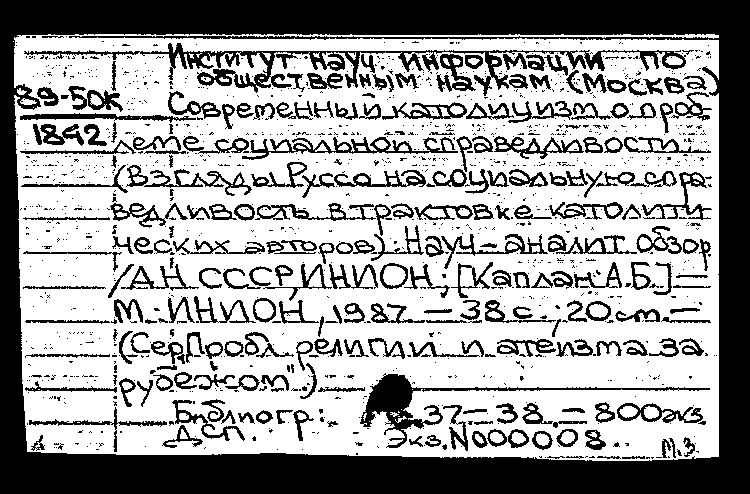 Институт науч. информации по
общественным наукам (Москва)
89-50К
1842
Современный католицизм о проб-
леме социальной справедливости:
(Взгляды Руссо на социальную спра-
ведливость в трактовке католити
ческих авторов): Науч-аналит. обзор
/АН СССР, ИНИОН; [Каплан А.Б.] —
М.: ИНИОН, 1987. — 38 с.; 20 см. —
(Сер. "Пробл. религии и атеизма за
рубежом".)
Библиогр.: с. 37-38. — 800 экз.
ДСП. Экз. N000008..
М.З.